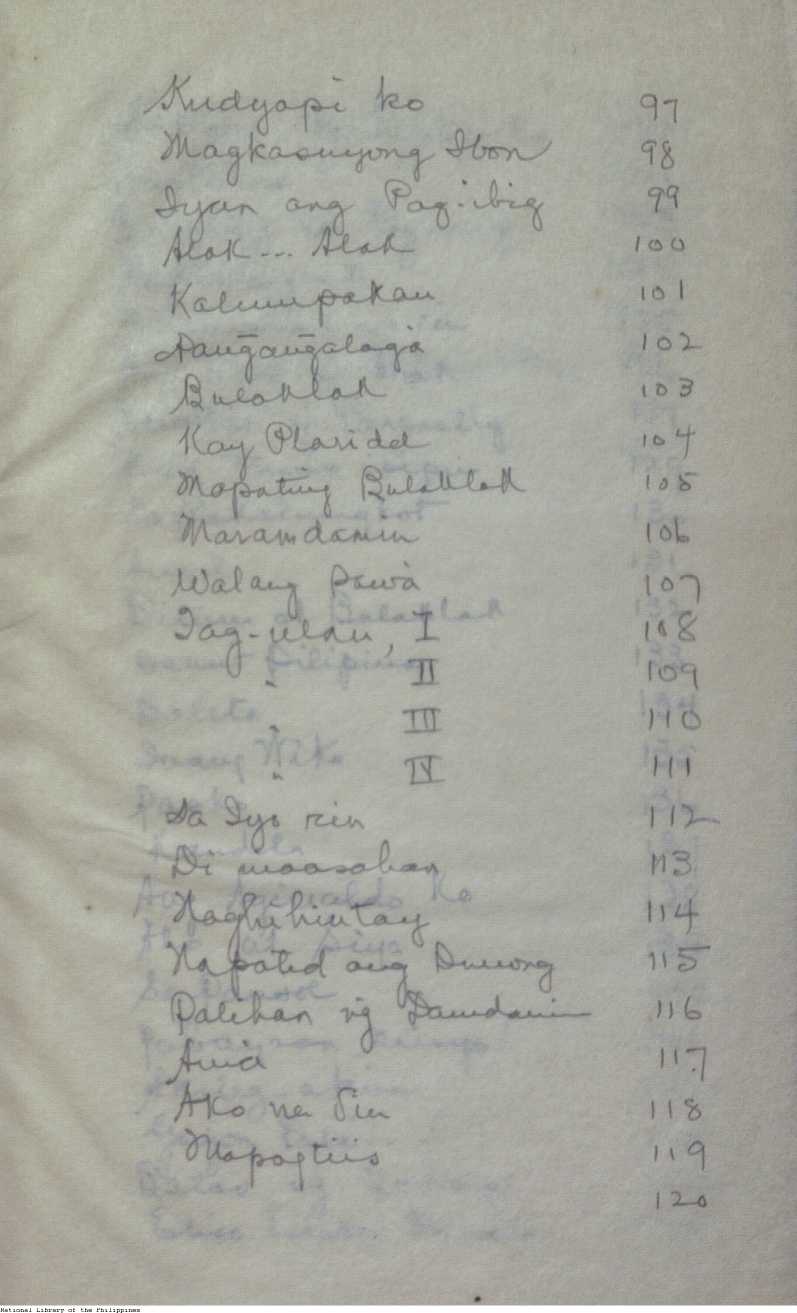 Kudyapi ko 97
Magkasuyong Ibon 98
Iyan ang Pag-ibig 99
Alak... Alak 100
Kalumpakan 101
Pañgañgalagà 102
Bulaklak 103
Kay Plaridel 104
Mapating Bulaklak 105
Maramdamin 106
Walang Pawà 107
Tag-ulan, I 108
" II 109
" III 110
" IV 111
Sa Iyo rin 112
Di maasahan 113
Naghihintay 114
Napatid ang Dunong 115
Palihan ng Damdamin 116
117
Ako na Din 118
Mapagtiis 119
120
National Library of the Philippines